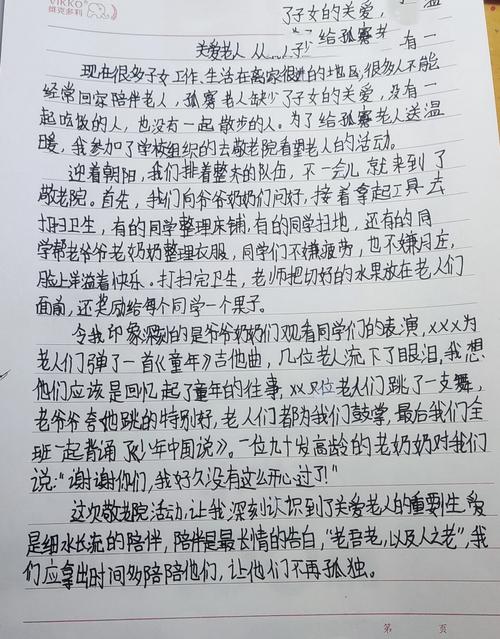 VIKKO
维克多利
子女的关爱,
温
给孤寡老
有一
关爱老人 从
现在很多子女工作、生活在离家很远的地区,很多人不能
经常回家陪伴老人,孤寡老人缺少了子女的关爱,没有一
起吃饭的人,也没有一起散步的人。为了给孤寡老人送温
暖,我参加了学校组织的去敬老院看望老人的活动。
迎着朝阳,我们排着整齐的队伍,不一会儿就来到了
敬老院。首先,我们向爷爷奶奶们问好,接着拿起工具去
打扫卫生,有的同学整理床铺,有的同学扫地,还有的同
学帮老爷爷老奶奶整理衣服,同学们不嫌疲劳,也不嫌月庄,
脸上洋溢着快乐。打扫完卫生,老师把切好的水果放在老人们
面前,还奖励给每个同学一个果子。
令我印象深刻的是爷爷奶奶们观看同学们的表演,xxx为
老人们弹了一首《童年》吉他曲,几位老人流下了眼泪,我想
他们应该是回忆起了童年的往事,xx又位老人们跳了一支舞,
老爷爷夸她跳的特别好,老人们都为我们鼓掌,最后我们全
班一起背诵了《少年中国说》。一位九十岁高龄的老奶奶对我们
说:“谢谢你们,我好久没有这么开心过了!”
这次敬老院活动,让我深刻认识到了关爱老人的重要性,爱
是细水长流的陪伴,陪伴是最长情的告白,“老吾老,以及人之老”,我
们应拿出时间多陪陪他们,让他们不再孤独。
第 页